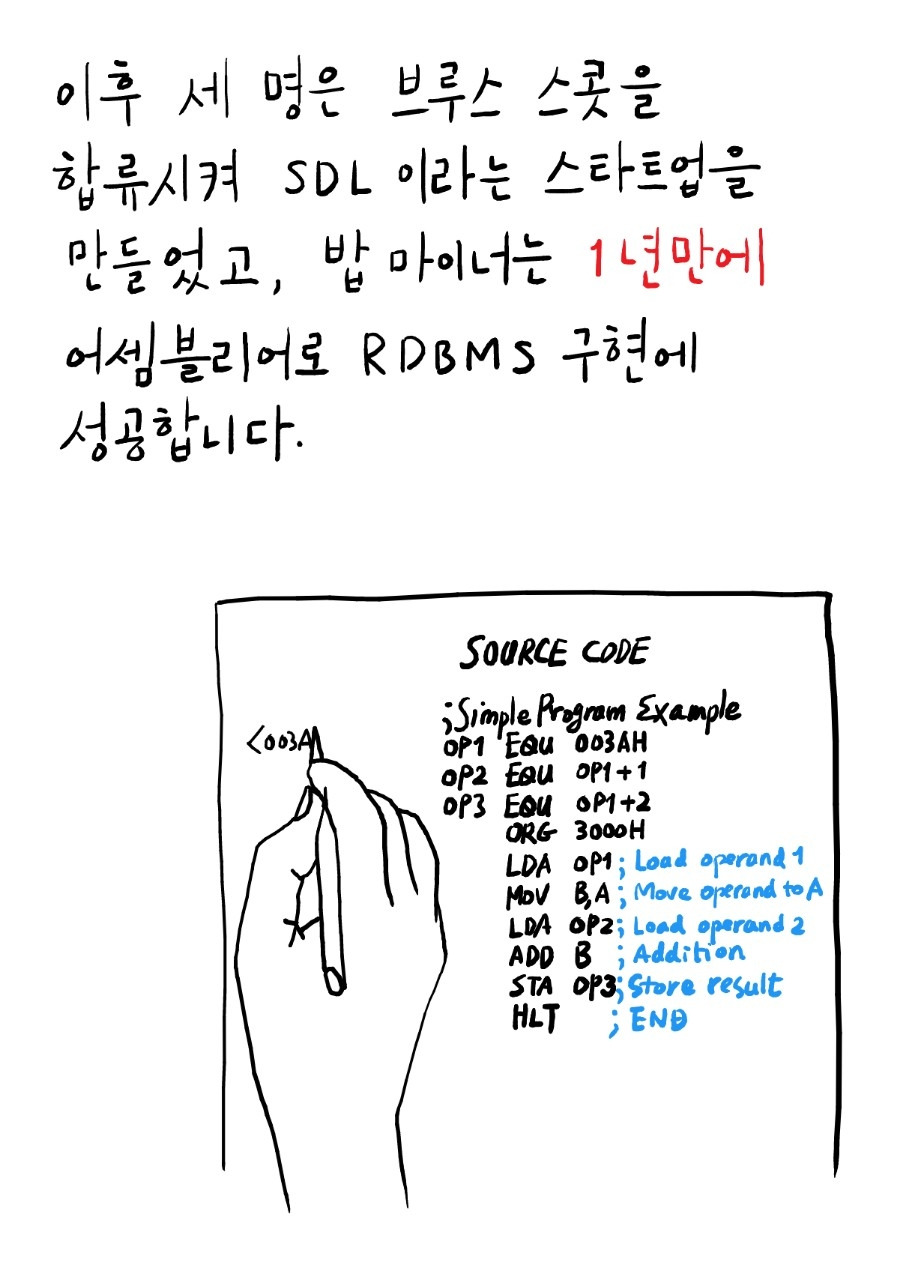 이후 세 명은 브루스 스콧을
합류시켜 SDL 이라는 스타트업을
만들었고, 밥 마이너는 1년만에
어셈블리어로 RDBMS 구현에
성공합니다.
SOURCE CODE
;Simple Program Example
<003A
OP1 EQU 003AH
OP2 EQU OP1+1
OP3 EQU OP1+2
ORG 3000H
LDA OP1 ; Load operand 1
MOV B,A ; Move operand to A
LDA OP2 ; Load operand 2
ADD B ; Addition
STA OP3 ; Store result
HLT ; END